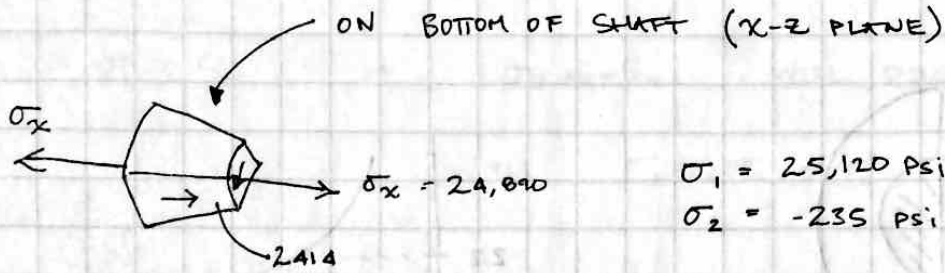 ON BOTTOM OF SHAFT (X-Z PLANE)
σx
σx - 24,890
σ1 = 25,120 PSi
σ2 = -235 PSi
2414